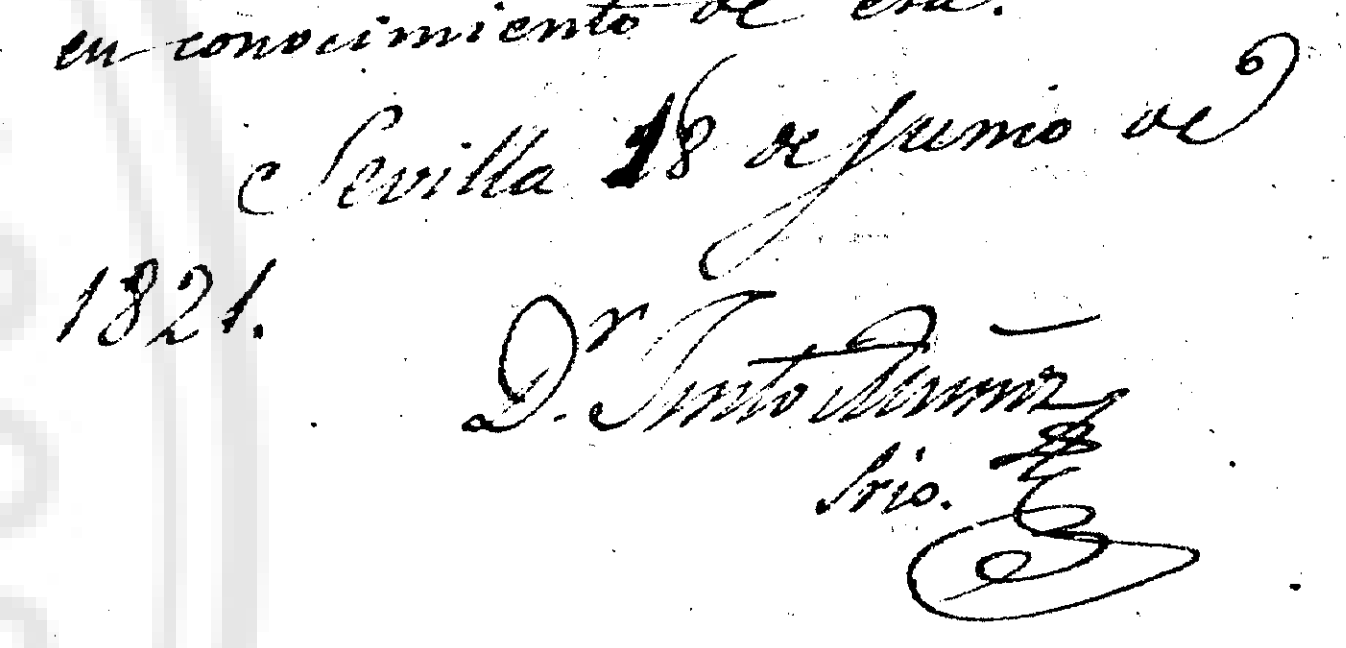 en conocimiento de esa.
Sevilla 18 de Junio de
1821.
Dr. Justo Muñoz
Srio.